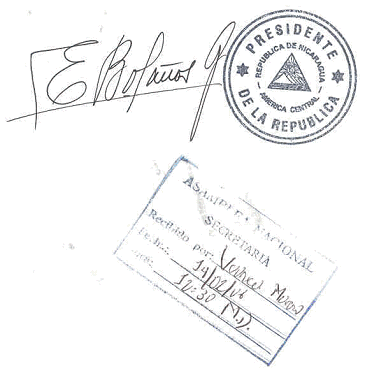 E Bolaños G
PRESIDENTE
DE LA REPUBLICA
REPUBLICA DE NICARAGUA
AMERICA CENTRAL
ASAMBLEA NACIONAL
SECRETARIA
Recibido por:
Fecha: 14/02/06
12:30 M.D.